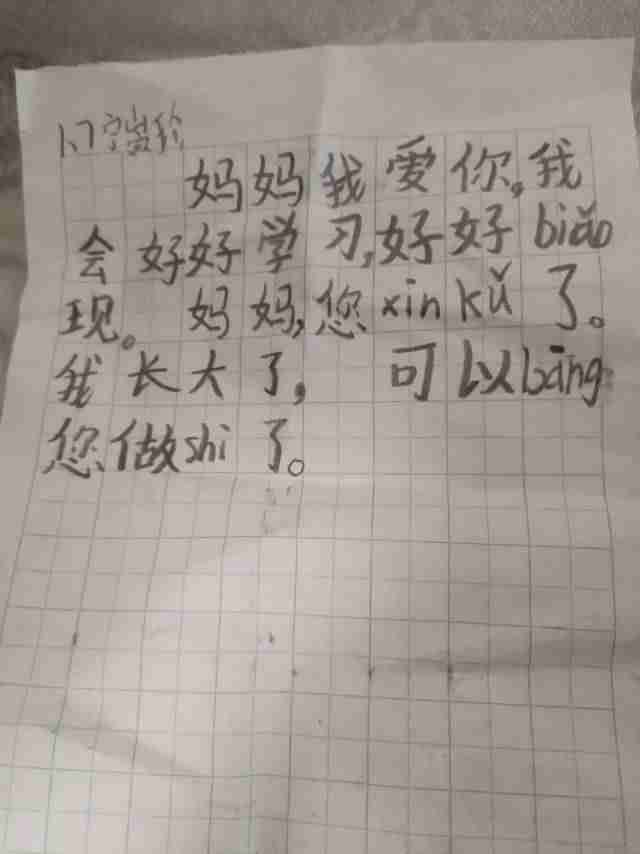 妈妈我爱你,我
会好好学习,好好biǎo
现。妈妈,您xin kǔ了。
我长大了,可以bāng
您做shi了。